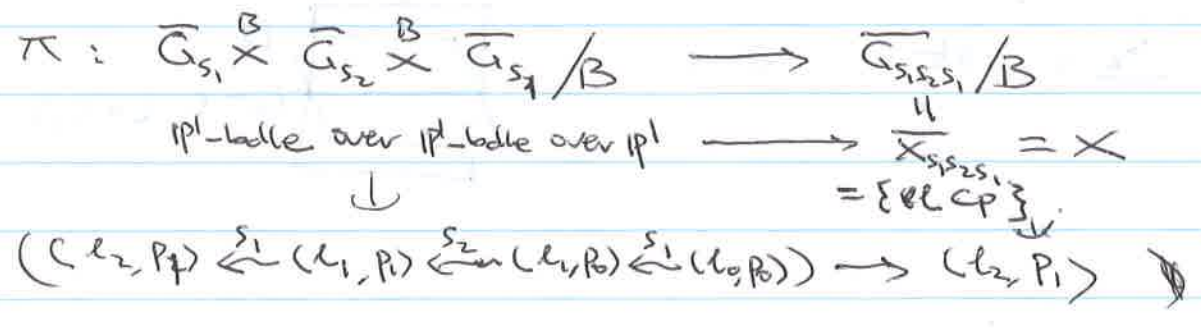 π : \overline{G}_{s_1} \overset{B}{×} \overline{G}_{s_2} \overset{B}{×} \overline{G}_{s_1} / B ⟶ \overline{G}_{s_1s_2s_1} / B
ℙ¹-bdle over ℙ¹-bdle over ℙ¹ ⟶ \overline{X}_{s_1s_2s_1} = X
= {l ⊂ p}
((l_2, P_1) \overset{s_1}{←} (l_1, P_1) \overset{s_2}{←} (l_1, P_0) \overset{s_1}{←} (l_0, P_0)) → (l_2, P_1)